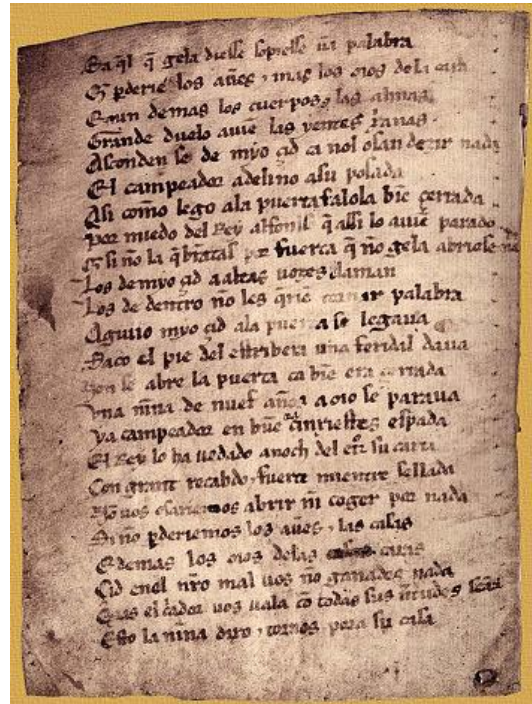 E a q̃l q̃ gela diesse sopiesse ũa palabra
Q̃ pderie los aũes ⁊ mas los oios de la cara
E aun demas los cuerpos ⁊ las almas
Grande duelo auiẽ las yentes x̃anas
Asconden se de myo çid ca nol osan dezir nada
El campeador adelino asu posada
Asi commo lego ala puerta falola biẽ çerrada
Por miedo del Rey alfonsſo q̃ assi lo auiẽ parado
Q̃ si nõ la q̃brãtas por fuerça q̃ nõ gela abriese
Los de myo çid a altas uozes laman
Los de dentro nõ les q̃riẽ tornar palabra
Aguijo myo çid ala puerta se legaua
Saco el pie del estribera una feridal daua
Non se abre la puerta ca biẽ era çerrada
Vna niña de nuef años a oio se paraua
ya campeador en buẽ çinxiestes espada
El Rey lo ha uedado anoch del su carta
Con grant recabdo ⁊ fuerte mientre sellada
Nõ uos osariemos abrir nĩ coger por nada
Si nõ pderiemos los aũes ⁊ las casas
E demas los oios delas caras
Çid enel nr̃o mal uos nõ ganades nada
Mas el c̃ador uos uala cõ todas sus ũtudes sãs
Esto la niña dixo ⁊ tornos pora su casa